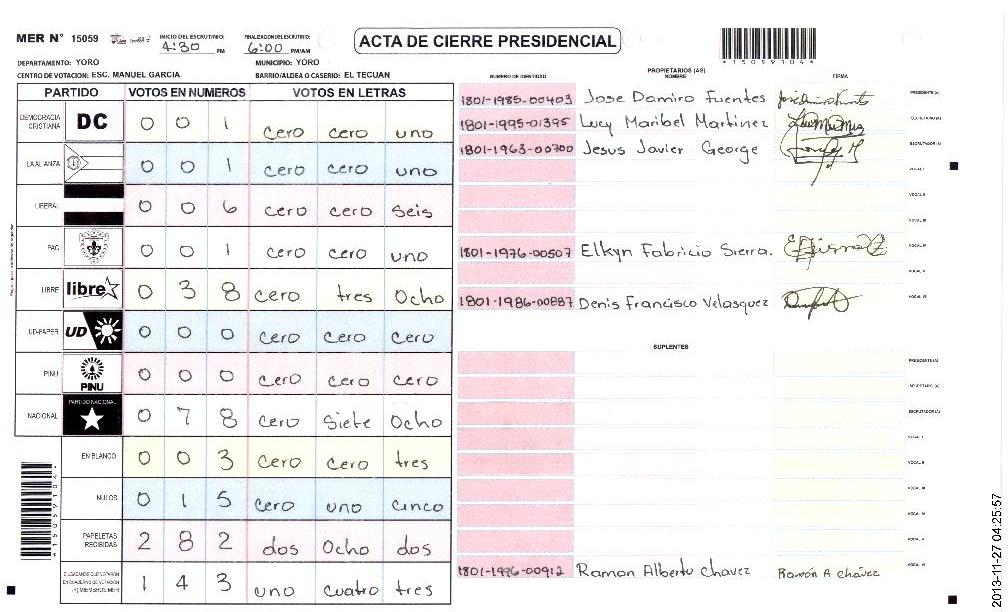 MER N° 15059
INICIO DEL ESCRUTINIO: 4:30 PM
FINALIZACION DEL ESCRUTINIO: 6:00 PM/AM
ACTA DE CIERRE PRESIDENCIAL
DEPARTAMENTO: YORO
MUNICIPIO: YORO
CENTRO DE VOTACION: ESC. MANUEL GARCIA
BARRIO/ALDEA O CASERIO: EL TECUAN
PARTIDO VOTOS EN NUMEROS VOTOS EN LETRAS
DEMOCRACIA CRISTIANA DC 0 0 1 cero cero uno
LA ALIANZA 0 0 1 cero cero uno
LIBERAL 0 0 6 cero cero seis
PAC 0 0 1 cero cero uno
LIBRE libre 0 3 8 cero tres Ocho
UD-FAPER UD 0 0 0 cero cero cero
PINU PINU 0 0 0 cero cero cero
NACIONAL PARTIDO NACIONAL 0 7 8 cero siete Ocho
EN BLANCO 0 0 3 cero cero tres
NULOS 0 1 5 cero uno cinco
PAPELETAS RECIBIDAS 2 8 2 dos Ocho dos
CIUDADANOS QUE VOTARON
EN CUADERNO DE VOTACION
(+) MIEMBROS MER 1 4 3 uno cuatro tres
4150591044
PROPIETARIOS (AS)
NUMERO DE IDENTIDAD NOMBRE FIRMA
1801-1985-00403 Jose Damiro Fuentes PRESIDENTE (A)
1801-1995-01395 Lucy Maribel Martinez SECRETARIO (A)
1801-1963-00700 Jesus Javier George ESCRUTADOR (A)
VOCAL I
VOCAL II
VOCAL III
1801-1976-00507 Elkyn Fabricio Sierra. VOCAL IV
VOCAL V
1801-1986-00887 Denis Francisco Velasquez VOCAL VI
SUPLENTES
PRESIDENTE (A)
SECRETARIO (A)
ESCRUTADOR (A)
VOCAL I
VOCAL II
VOCAL III
VOCAL IV
VOCAL V
1801-1996-00912 Ramon Alberto Chavez Ramón A chávez VOCAL VI
2013-11-27 04:25:57